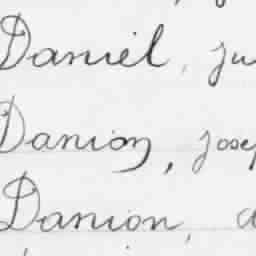 Daniel, ju
Danion, josep
Danion, d